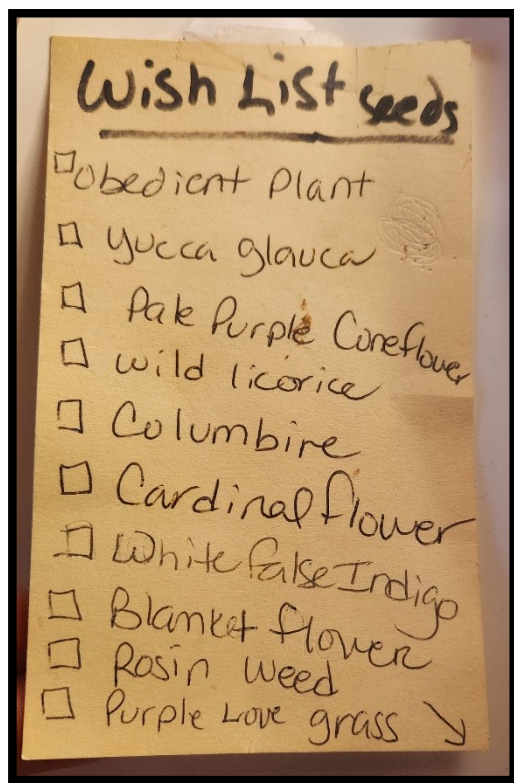 Wish List seeds
☐ Obedient Plant
☐ Yucca glauca
☐ Pale Purple Coneflower
☐ wild licorice
☐ Columbine
☐ Cardinal flower
☐ White false Indigo
☐ Blanket flower
☐ Rosin weed
☐ Purple Love grass ↘